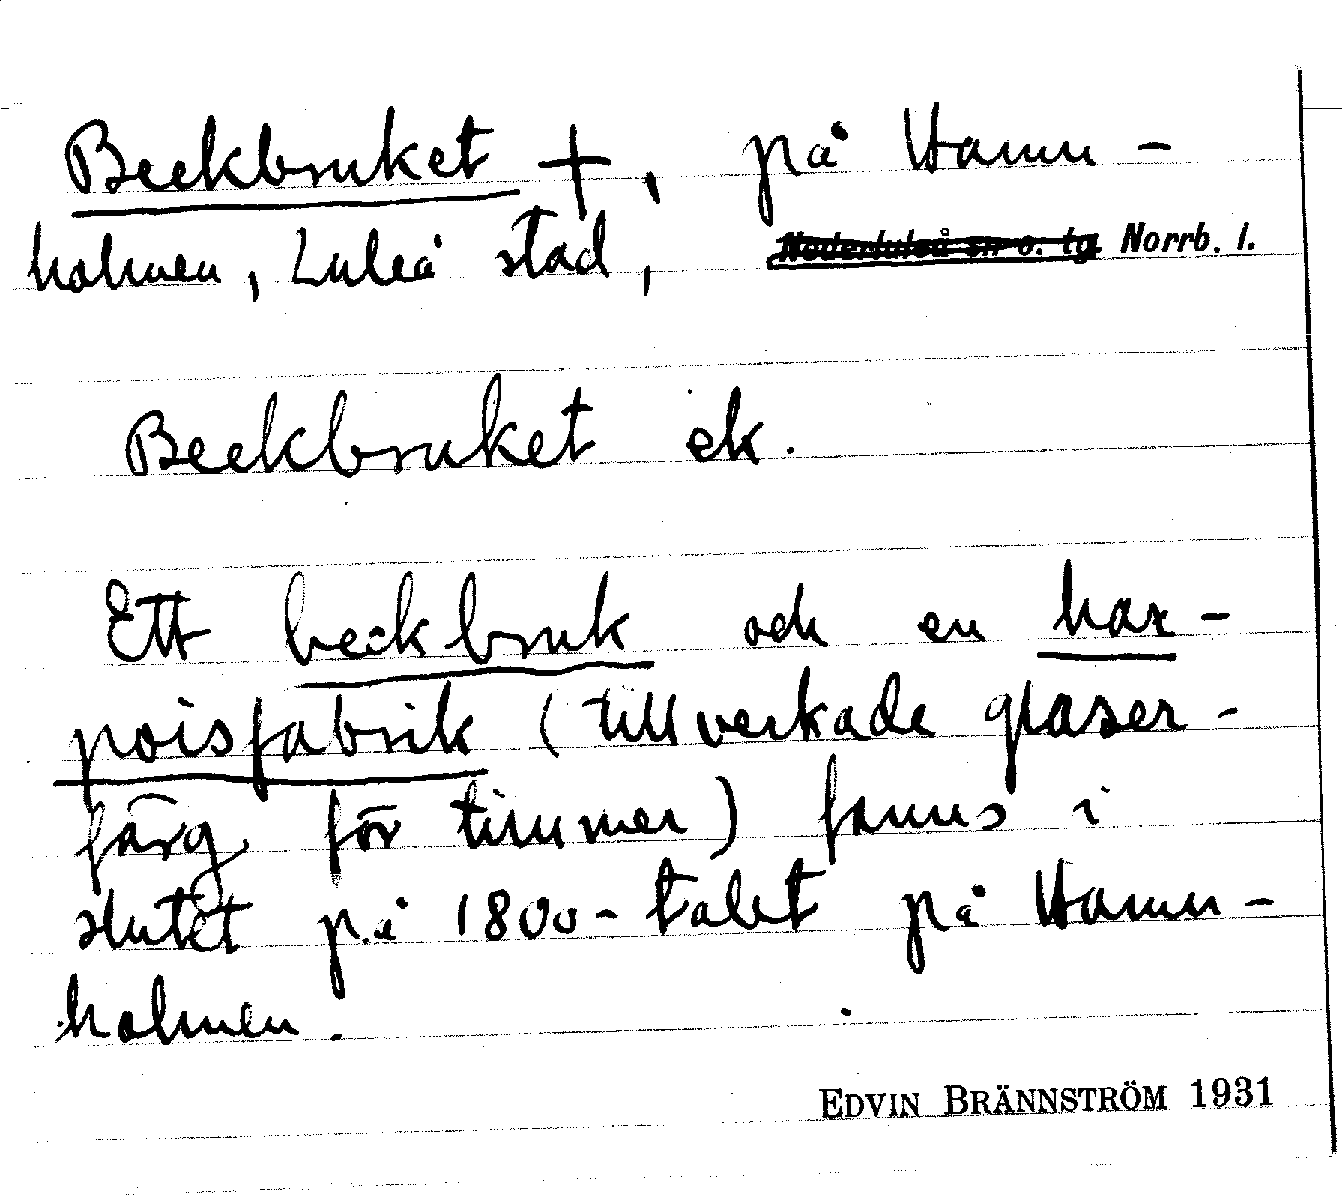 Beckbruket +, på Hamn-
holmen, Luleå stad, Nederluleå sn o. tg Norrb. l.
Beckbruket ek.
Ett beckbruk och en har-
poisfabrik (tillverkade glaser-
färg för timmer) fanns i
slutet på 1800-talet på Hamn-
holmen.
EDVIN BRÄNNSTRÖM 1931